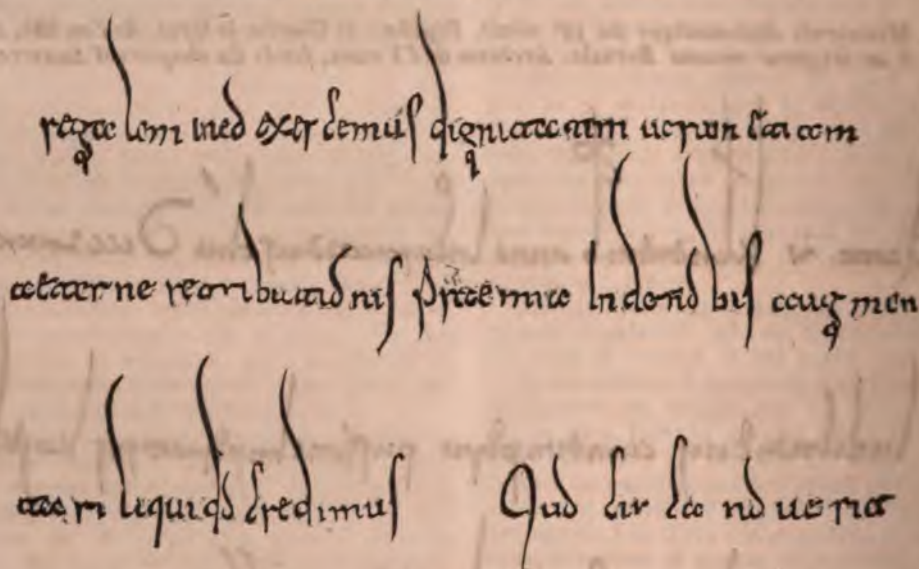 regalem ineo exercemus dignitatem uerum etiam
aeterne retributionis praemia Inde nobis augmen
tari liquido credimus Quo circa nouerit